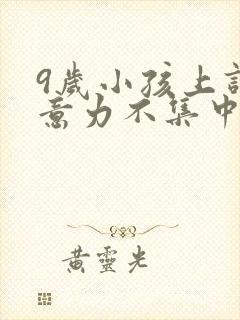 9歲小孩上
意力不集中
黃靈光